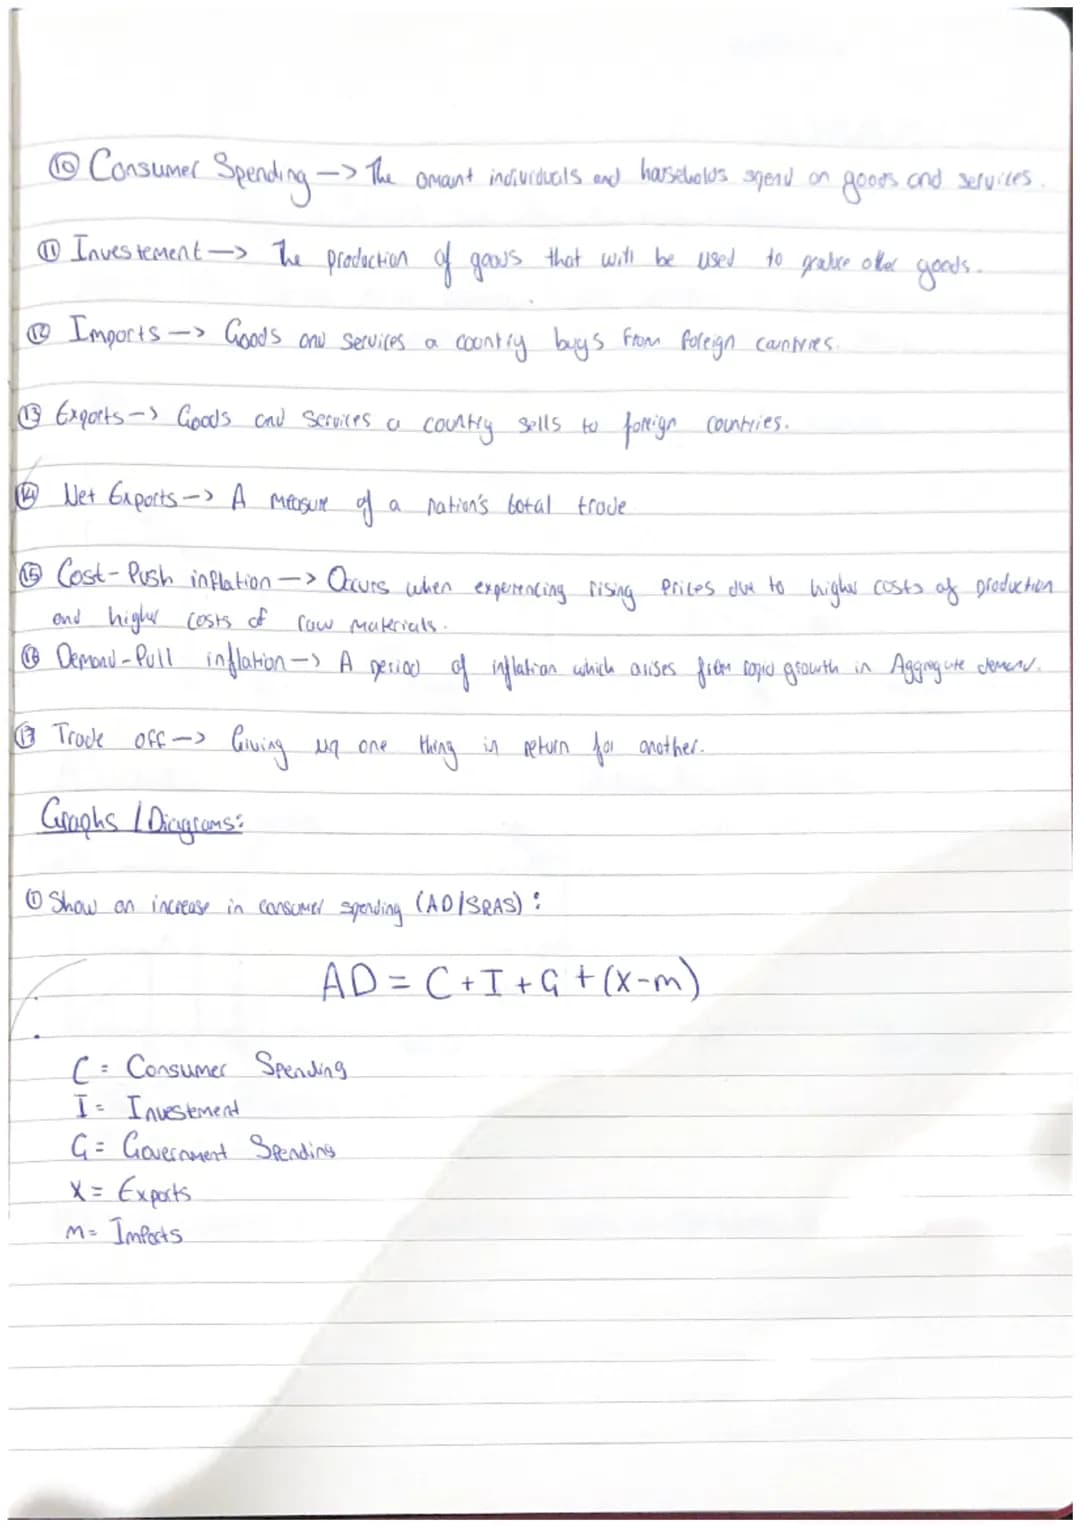 ⑩ Consumer Spending —> The amount individuals and households spend on goods and services.
⑪ Investement —> The production of goods that will be used to produce other goods.
⑫ Imports —> Goods and services a country buys from foreign countries.
⑬ Exports —> Goods and services a country sells to foreign countries.
⑭ Net Exports —> A measure of a nation's total trade
⑮ Cost-Push inflation —> Occurs when experiencing rising prices due to higher costs of production
and higher costs of raw materials.
⑯ Demand-Pull inflation —> A period of inflation which arises from rapid growth in Aggregate demand.
⑰ Trade off —> Giving up one thing in return for another.
Graphs / Diagrams:
① Show an increase in consumer spending (AD/SRAS) :
AD = C + I + G + (X-m)
C = Consumer Spending
I = Investement
G = Government Spending
X = Exports
M = Imports